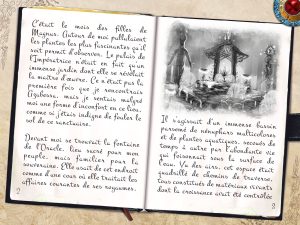 C'était le mois des filles de
Magnus. Autour de moi pullulaient
les plantes les plus fascinantes qu'il
soit permit d'observer. Le palais de
l'Impératrice n'était en fait qu'un
immense jardin dont elle se révélait
la maître d'œuvre. Ce n'était pas la
première fois que je rencontrais
mais je sentais malgré
moi une forme d'inconfort en ce lieu,
comme si j'étais indigne de fouler le
sol de ce sanctuaire.
Devant moi se trouvait la fontaine
de l'Oracle, lieu sacré pour mon
peuple, mais familier pour la
souveraine. Elle usait de cet endroit
comme d'une cour où elle traitait les
affaires courantes de ses royaumes.
2
Il s'agissait d'un immense bassin
parsemé de nénuphars multicolores
et de plantes aquatiques, recouvs de
temps à autre par l'abondante vie
qui foisonnait sous la surface de
l'eau. Vu des airs, cet espace était
quadrillé de chemins de traverse,
tous constitués de matériaux vivants
dont la croissance avait été contrôlée
3